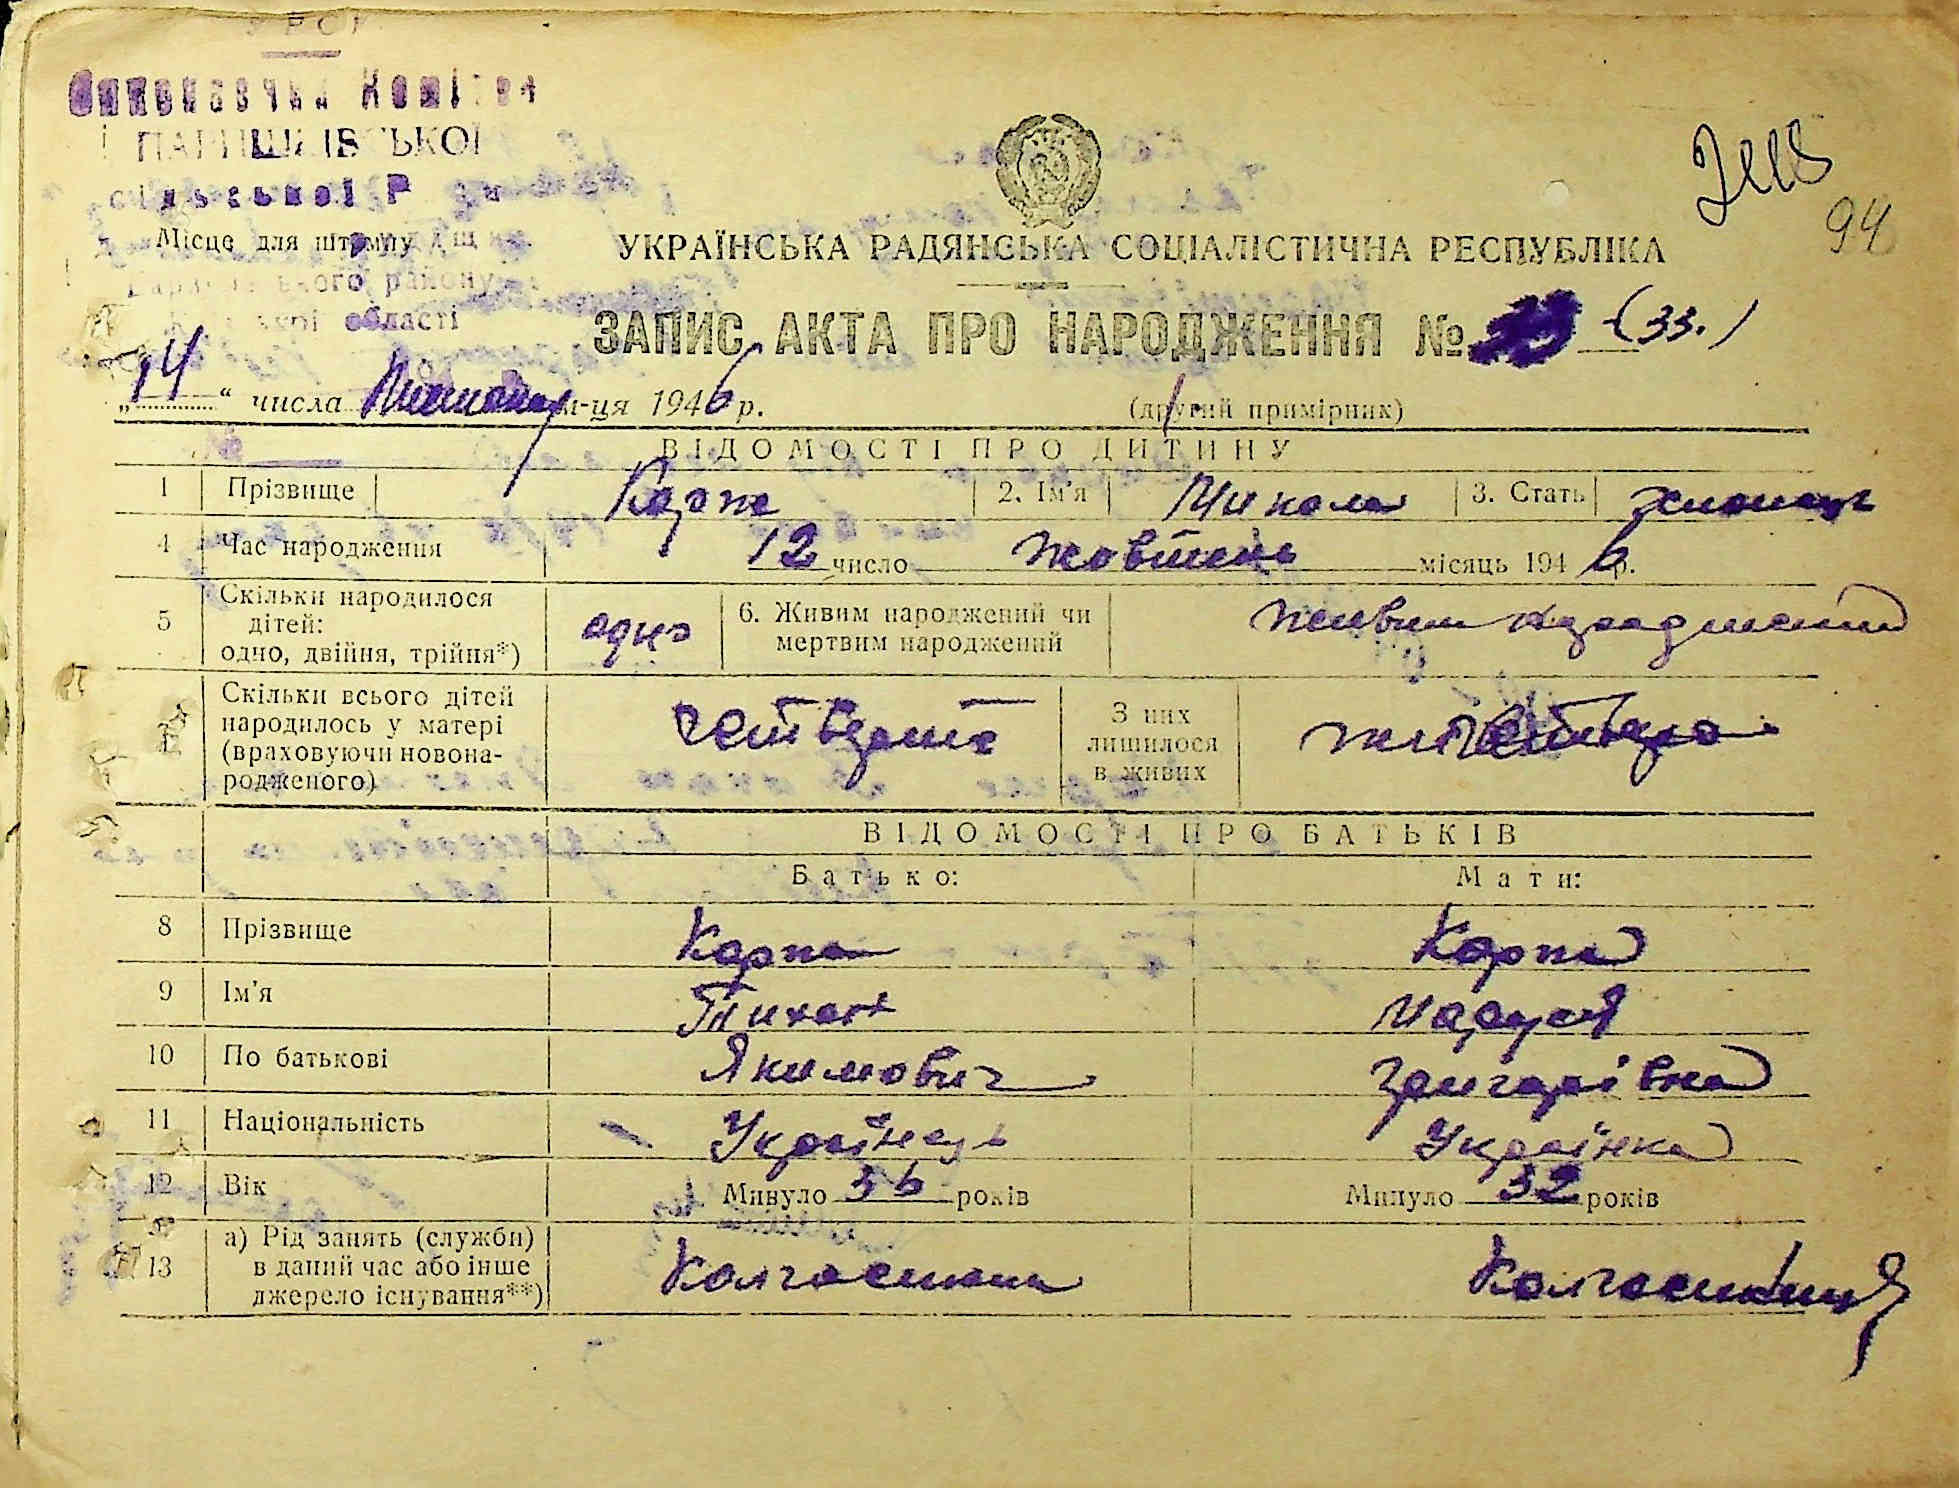 УРСР
Виконавчий Комітет
ПАРИШКІВСЬКОЇ
сільської Ради
Місце для штампу
району
області
УКРАЇНСЬКА РАДЯНСЬКА СОЦІАЛІСТИЧНА РЕСПУБЛІКА
94
ЗАПИС АКТА ПРО НАРОДЖЕННЯ № 33 (33.)
„14“ числа м-ця 1946 р. (другий примірник)
ВІДОМОСТІ ПРО ДИТИНУ
1 Прізвище Карпа 2. Ім'я Микола 3. Стать хлопець
4 Час народження 12 число жовтень місяць 1946 р.
5 Скільки народилося дітей: одно, двійня, трійня*) одно 6. Живим народжений чи мертвим народжений живим народжений
7 Скільки всього дітей народилось у матері (враховуючи новонародженого) четверо З них лишилося в живих четверо
ВІДОМОСТІ ПРО БАТЬКІВ
Батько: Мати:
8 Прізвище Карпа Карпа
9 Ім'я Тихон Маруся
10 По батькові Якимович Григорівна
11 Національність Українець Українка
12 Вік Минуло 36 років Минуло 32 років
13 а) Рід занять (служби) в даний час або інше джерело існування**) Колгоспник Колгоспниця